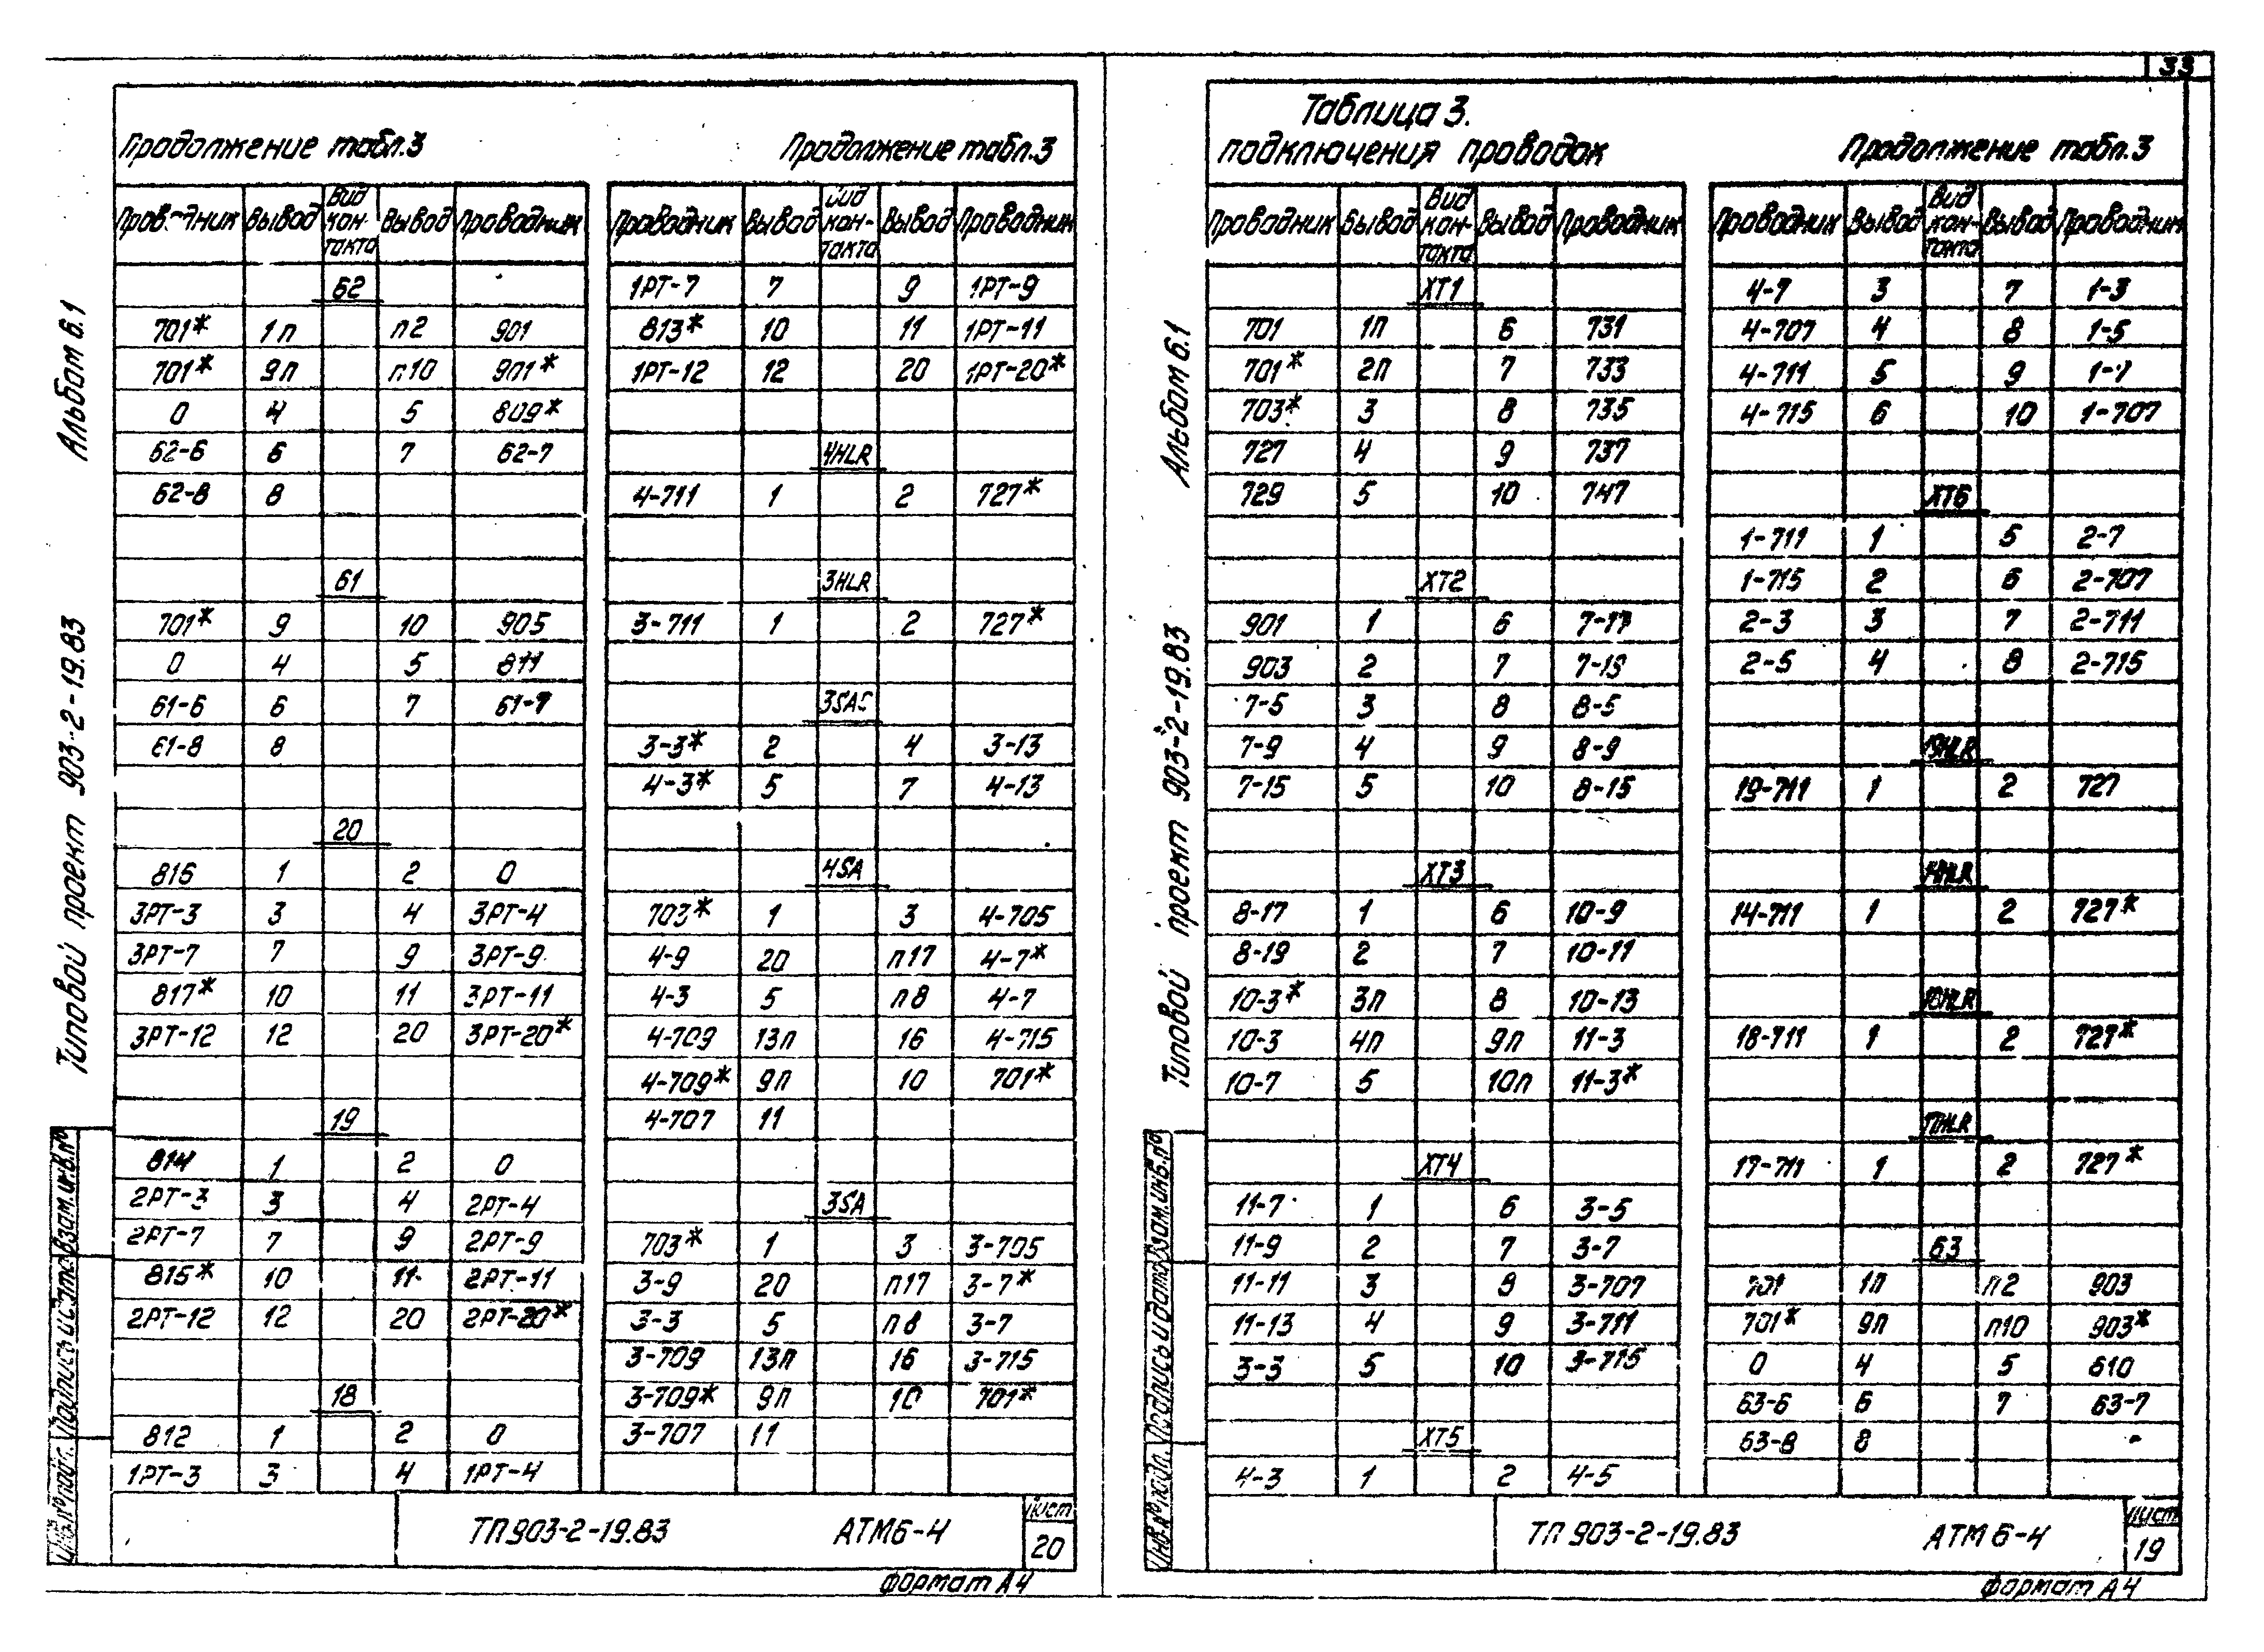 33
Альбом 6.1
Типовой проект 903-2-19.83
Продолжение табл.3
Проводник Вывод Вид контакта Вывод Проводник
62
701* 1п п2 901
701* 9п п10 901*
0 4 5 809*
62-6 6 7 62-7
62-8 8
61
701* 9 10 905
0 4 5 811
61-6 6 7 61-7
61-8 8
20
816 1 2 0
3РТ-3 3 4 3РТ-4
3РТ-7 7 9 3РТ-9
817* 10 11 3РТ-11
3РТ-12 12 20 3РТ-20*
19
814 1 2 0
2РТ-3 3 4 2РТ-4
2РТ-7 7 9 2РТ-9
815* 10 11 2РТ-11
2РТ-12 12 20 2РТ-20*
18
812 1 2 0
1РТ-3 3 4 1РТ-4
Продолжение табл.3
Проводник Вывод Вид контакта Вывод Проводник
1РТ-7 7 9 1РТ-9
813* 10 11 1РТ-11
1РТ-12 12 20 1РТ-20*
4HLR
4-711 1 2 727*
3HLR
3-711 1 2 727*
3SAC
3-3* 2 4 3-13
4-3* 5 7 4-13
4SA
703* 1 3 4-705
4-9 20 п17 4-7*
4-3 5 п8 4-7
4-709 13п 16 4-715
4-709* 9п 10 701*
4-707 11
3SA
703* 1 3 3-705
3-9 20 п17 3-7*
3-3 5 п8 3-7
3-709 13п 16 3-715
3-709* 9п 10 701*
3-707 11
Инв.№ подл. Подпись и дата Взам.инв.№
ТП903-2-19.83 АТМ6-4
Лист
20
Формат А4
Альбом 6.1
Типовой проект 903-2-19.83
Таблица 3.
подключения проводок
Проводник Вывод Вид контакта Вывод Проводник
ХТ1
701 1П 6 731
701* 2П 7 733
703* 3 8 735
727 4 9 737
729 5 10 747
ХТ2
901 1 6 7-17
903 2 7 7-19
7-5 3 8 8-5
7-9 4 9 8-9
7-15 5 10 8-15
ХТ3
8-17 1 6 10-9
8-19 2 7 10-11
10-3* 3п 8 10-13
10-3 4п 9п 11-3
10-7 5 10п 11-3*
ХТ4
11-7 1 6 3-5
11-9 2 7 3-7
11-11 3 8 3-707
11-13 4 9 3-711
3-3 5 10 3-715
ХТ5
4-3 1 2 4-5
Продолжение табл.3
Проводник Вывод Вид контакта Вывод Проводник
4-7 3 7 1-3
4-707 4 8 1-5
4-711 5 9 1-7
4-715 6 10 1-707
ХТ6
1-711 1 5 2-7
1-715 2 6 2-707
2-3 3 7 2-711
2-5 4 8 2-715
19HLR
19-711 1 2 727
14HLR
14-711 1 2 727*
18HLR
18-711 1 2 727*
17HLR
17-711 1 2 727*
63
701 1п п2 903
701* 9п п10 903*
0 4 5 810
63-6 6 7 63-7
63-8 8 -
Инв.№ подл. Подпись и дата Взам.инв.№
ТП 903-2-19.83 АТМ 6-4
Лист
19
Формат А4